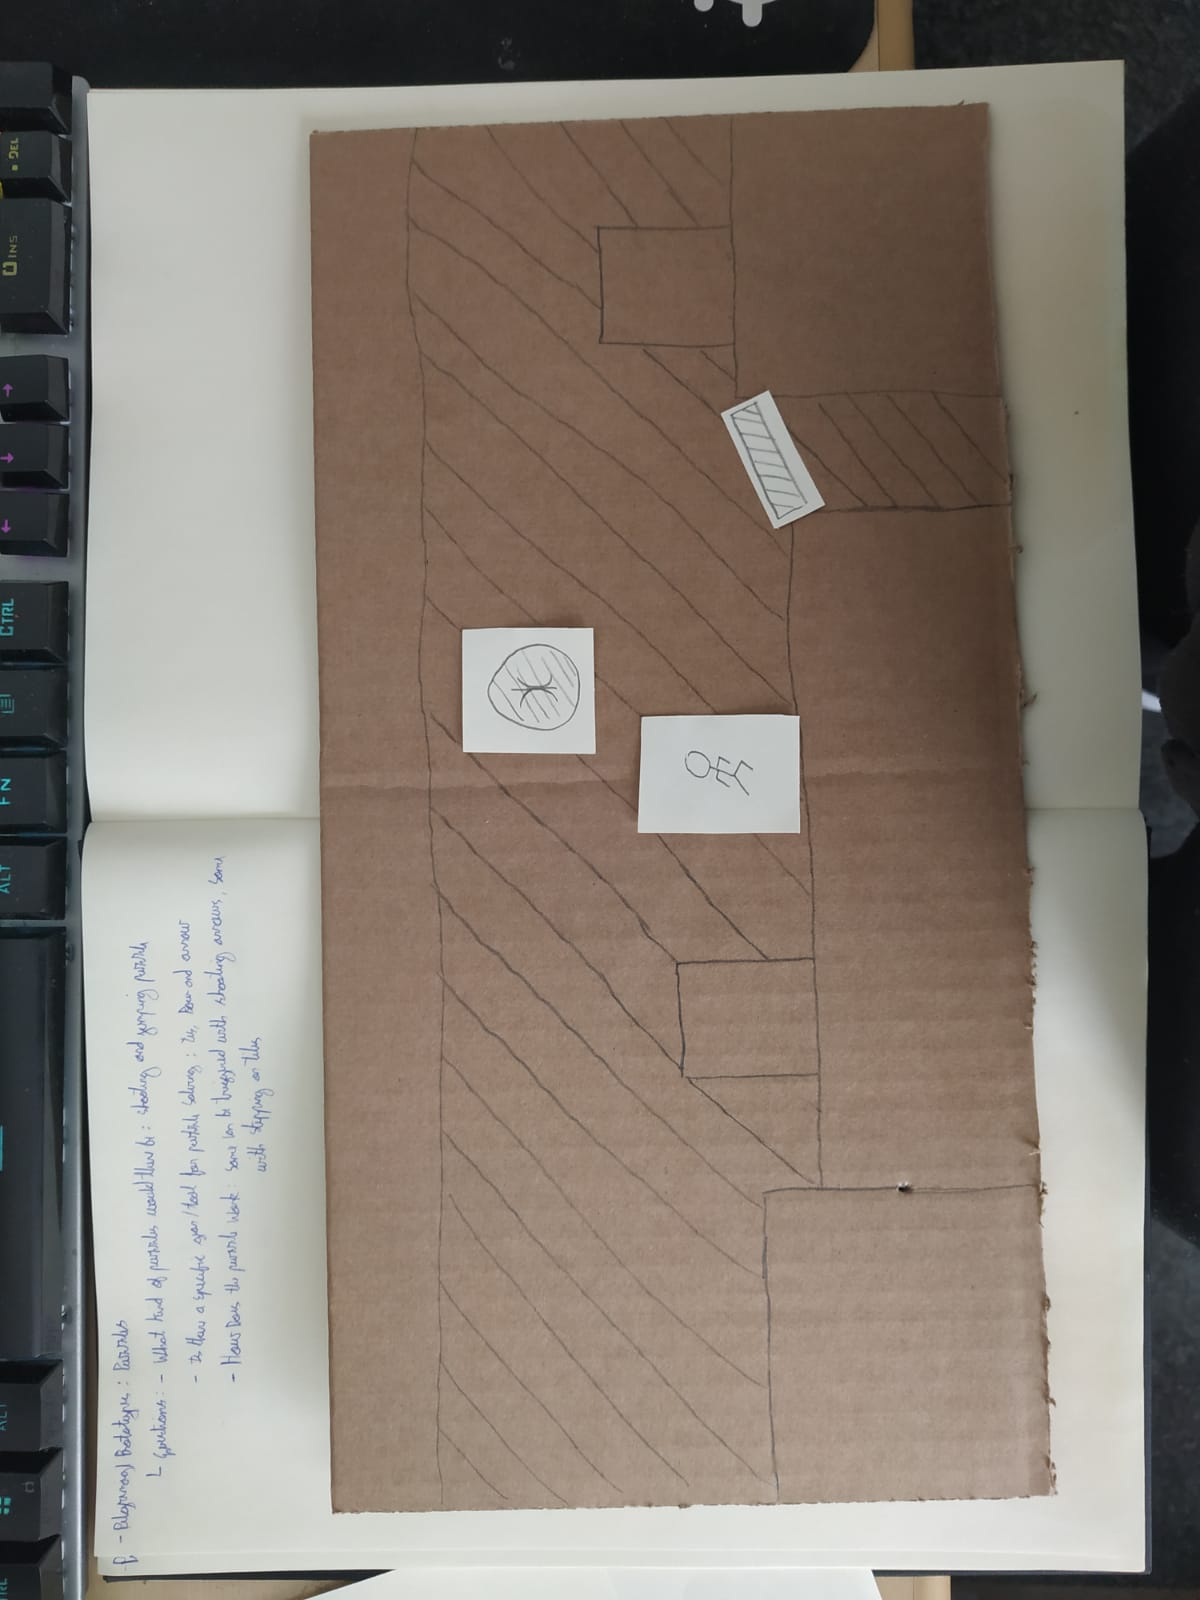 CTRL
ALT
ALT
FN
CTRL
INS
DEL
Prototype: Puzzles
Questions: - What kind of puzzles would there be: shooting and jumping puzzle
- Is there a specific gear/tool for puzzle solving: Yes, Bow and arrow
- How Does the puzzle work: some can be triggered with shooting arrows, some
with stepping on tiles